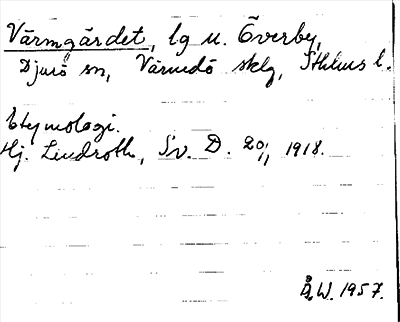 Värmgärdet, lg u. Överby,
Djurö sn, Värmdö sklg, Sthlms l.
Etymologi.
Hj. Lindroth, Sv. D. 20/11 1918.
Å.W. 1957.